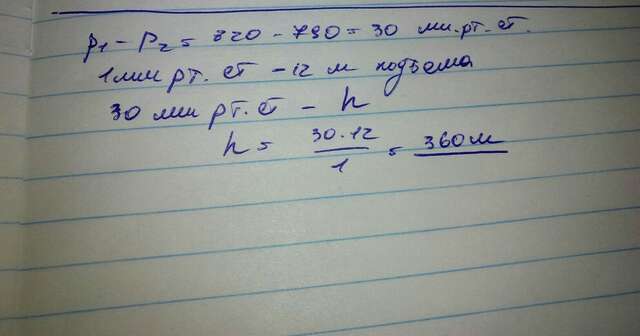 p₁ - p₂ = 820 - 790 = 30 мм.рт.ст.
1 мм рт. ст - 12 м подъема
30 мм рт. ст - h
h = 30·12 / 1 = 360 м